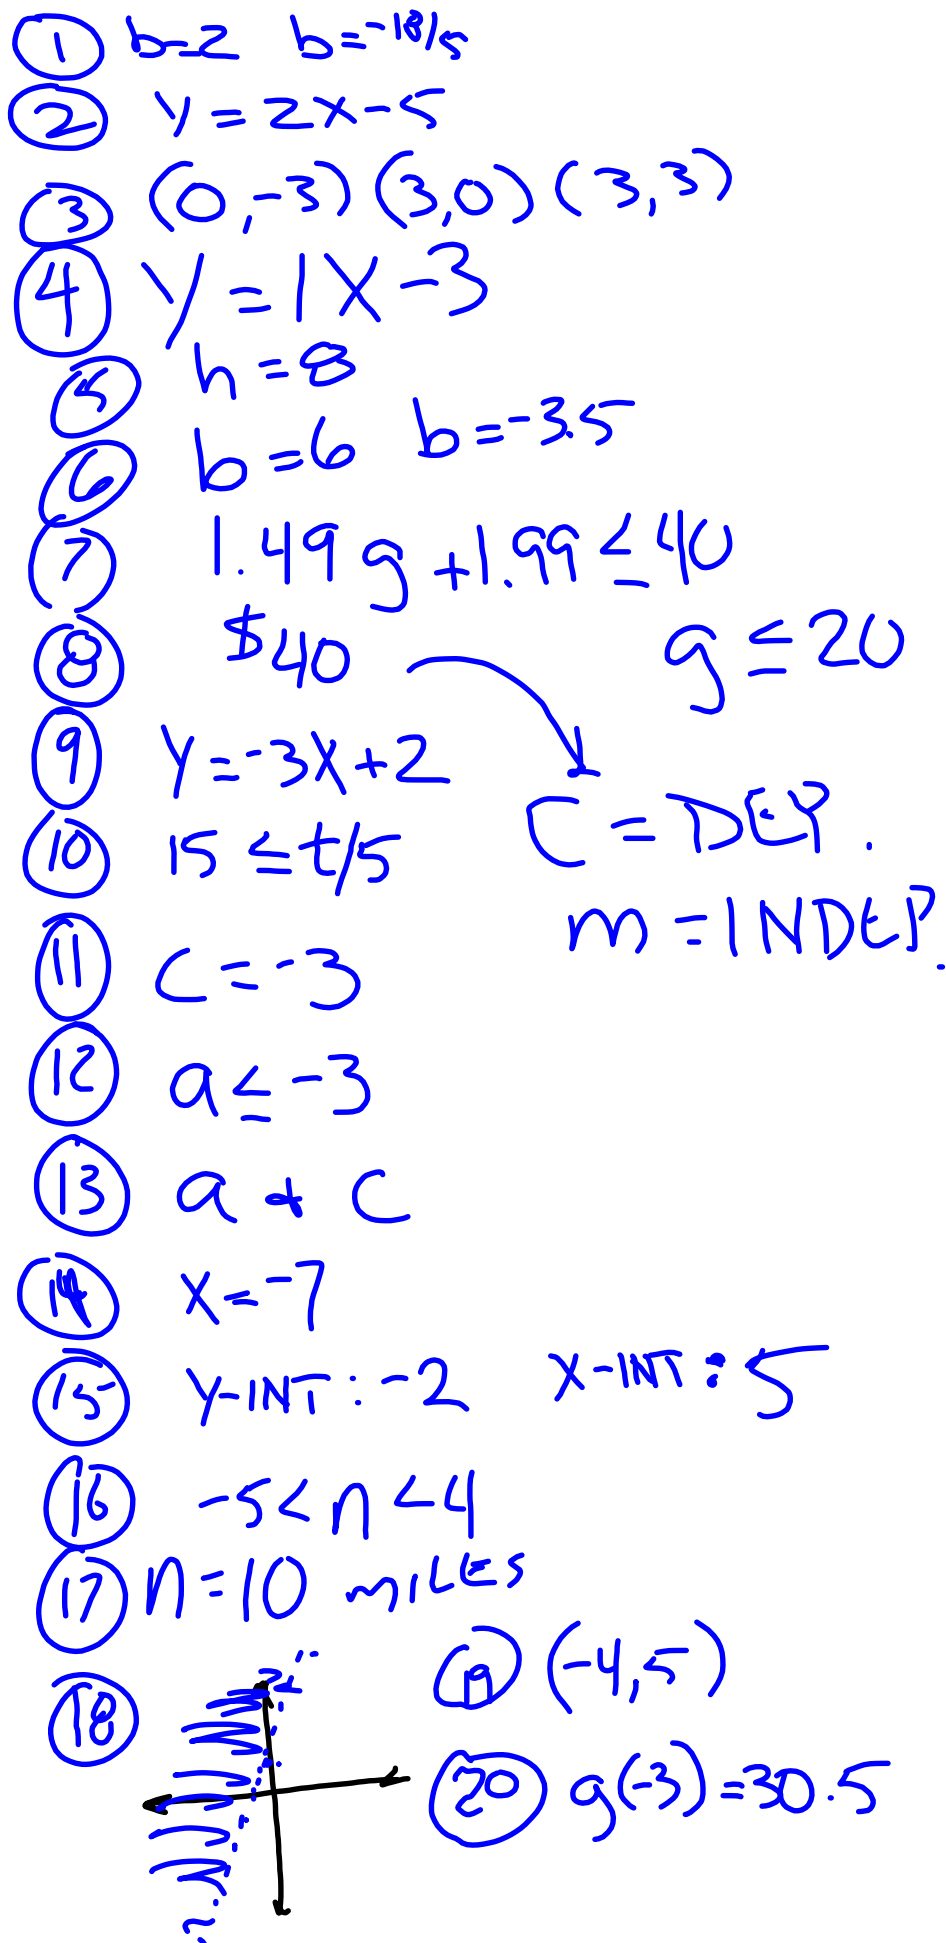 1 b=2 b=-18/5
2 y=2x-5
3 (0,-3) (3,0) (3,3)
4 y=1x-3
5 h=8
6 b=6 b=-3.5
7 1.49g+1.99≤40
g≤20
8 $40
C=DEP.
m=INDEP.
9 y=-3x+2
10 15≤t/5
11 c=-3
12 a≤-3
13 a + c
14 x=-7
15 y-INT:-2 x-INT:5
16 -5<n<4
17 n=10 miLES
18
19 (-4,5)
20 g(-3)=30.5